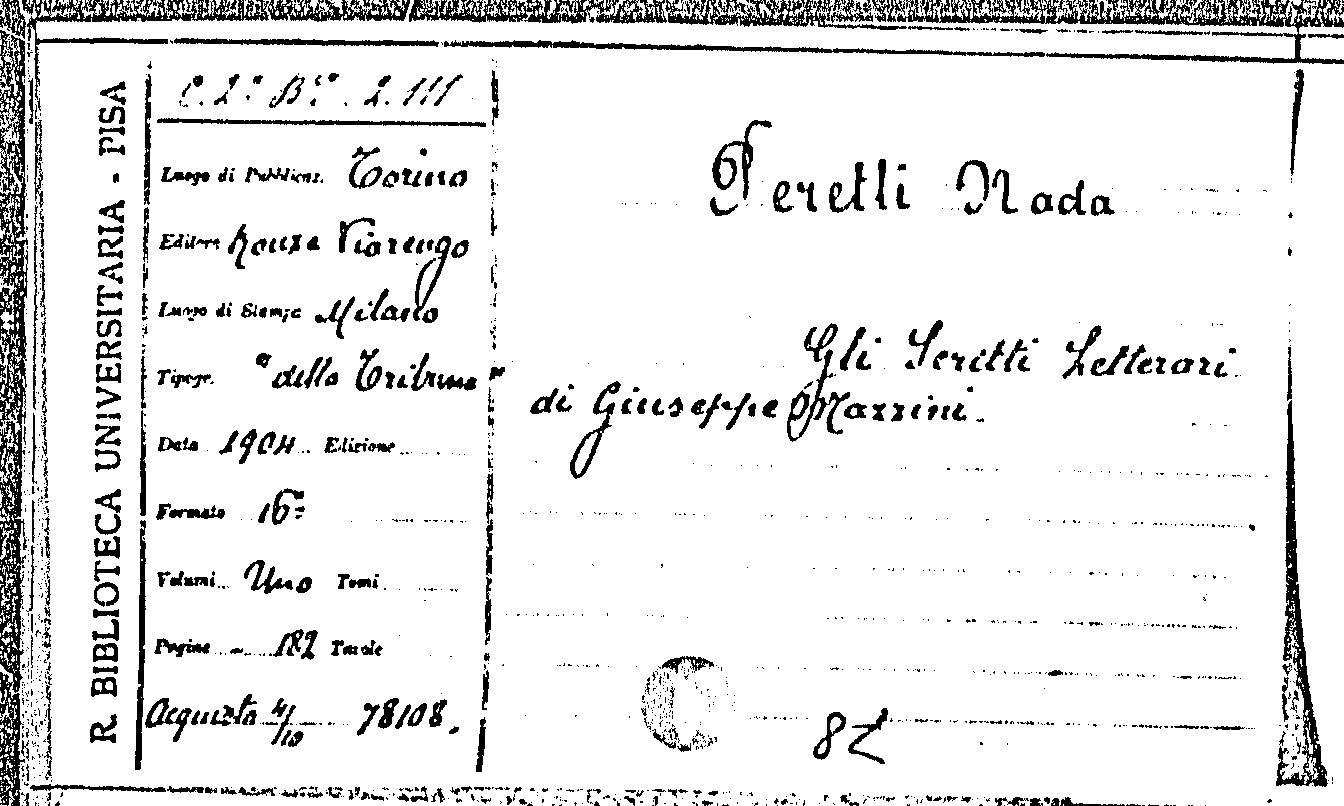 R. BIBLIOTECA UNIVERSITARIA - PISA
C. 2.° B.° . 2. 111
Luogo di Pubblicaz. Torino
Editore Roux e Viarengo
Luogo di Stampa Milano
Tipogr. "della Tribuna"
Data 1904 Edizione
Formato 16°
Volumi Uno Tomi
Pagine 182 Tavole
Acquisto 4/10 78108.
Peretti Nada
Gli Scritti Letterari
di Giuseppe Mazzini.
8L